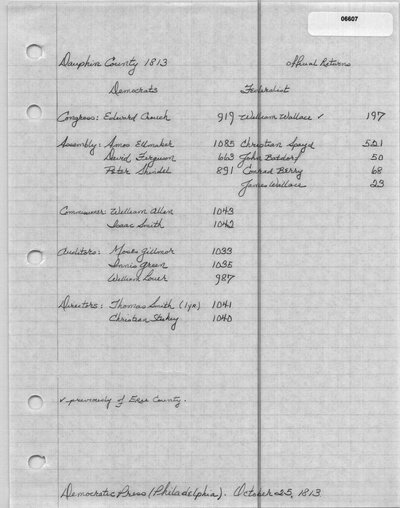 06607
Dauphin County 1813 Official Returns
Democrats Federalist
Congress: Edward Crouch 919 William Wallace ✓ 197
Assembly: Amos Ellmaker 1085 Christian Spayd 521
David Ferguson 663 John Boddorf 50
Peter Shindel 891 Conrad Berry 68
James Wallace 23
Commissioner William Allen 1043
Isaac Smith 1042
Auditors: Moses Gillmor 1033
Innis Green 1035
William Lauer 987
Directors: Thomas Smith (1 yr) 1041
Christian Stukey 1040
✓ previously of Erie County.
Democratic Press (Philadelphia). October 25, 1813